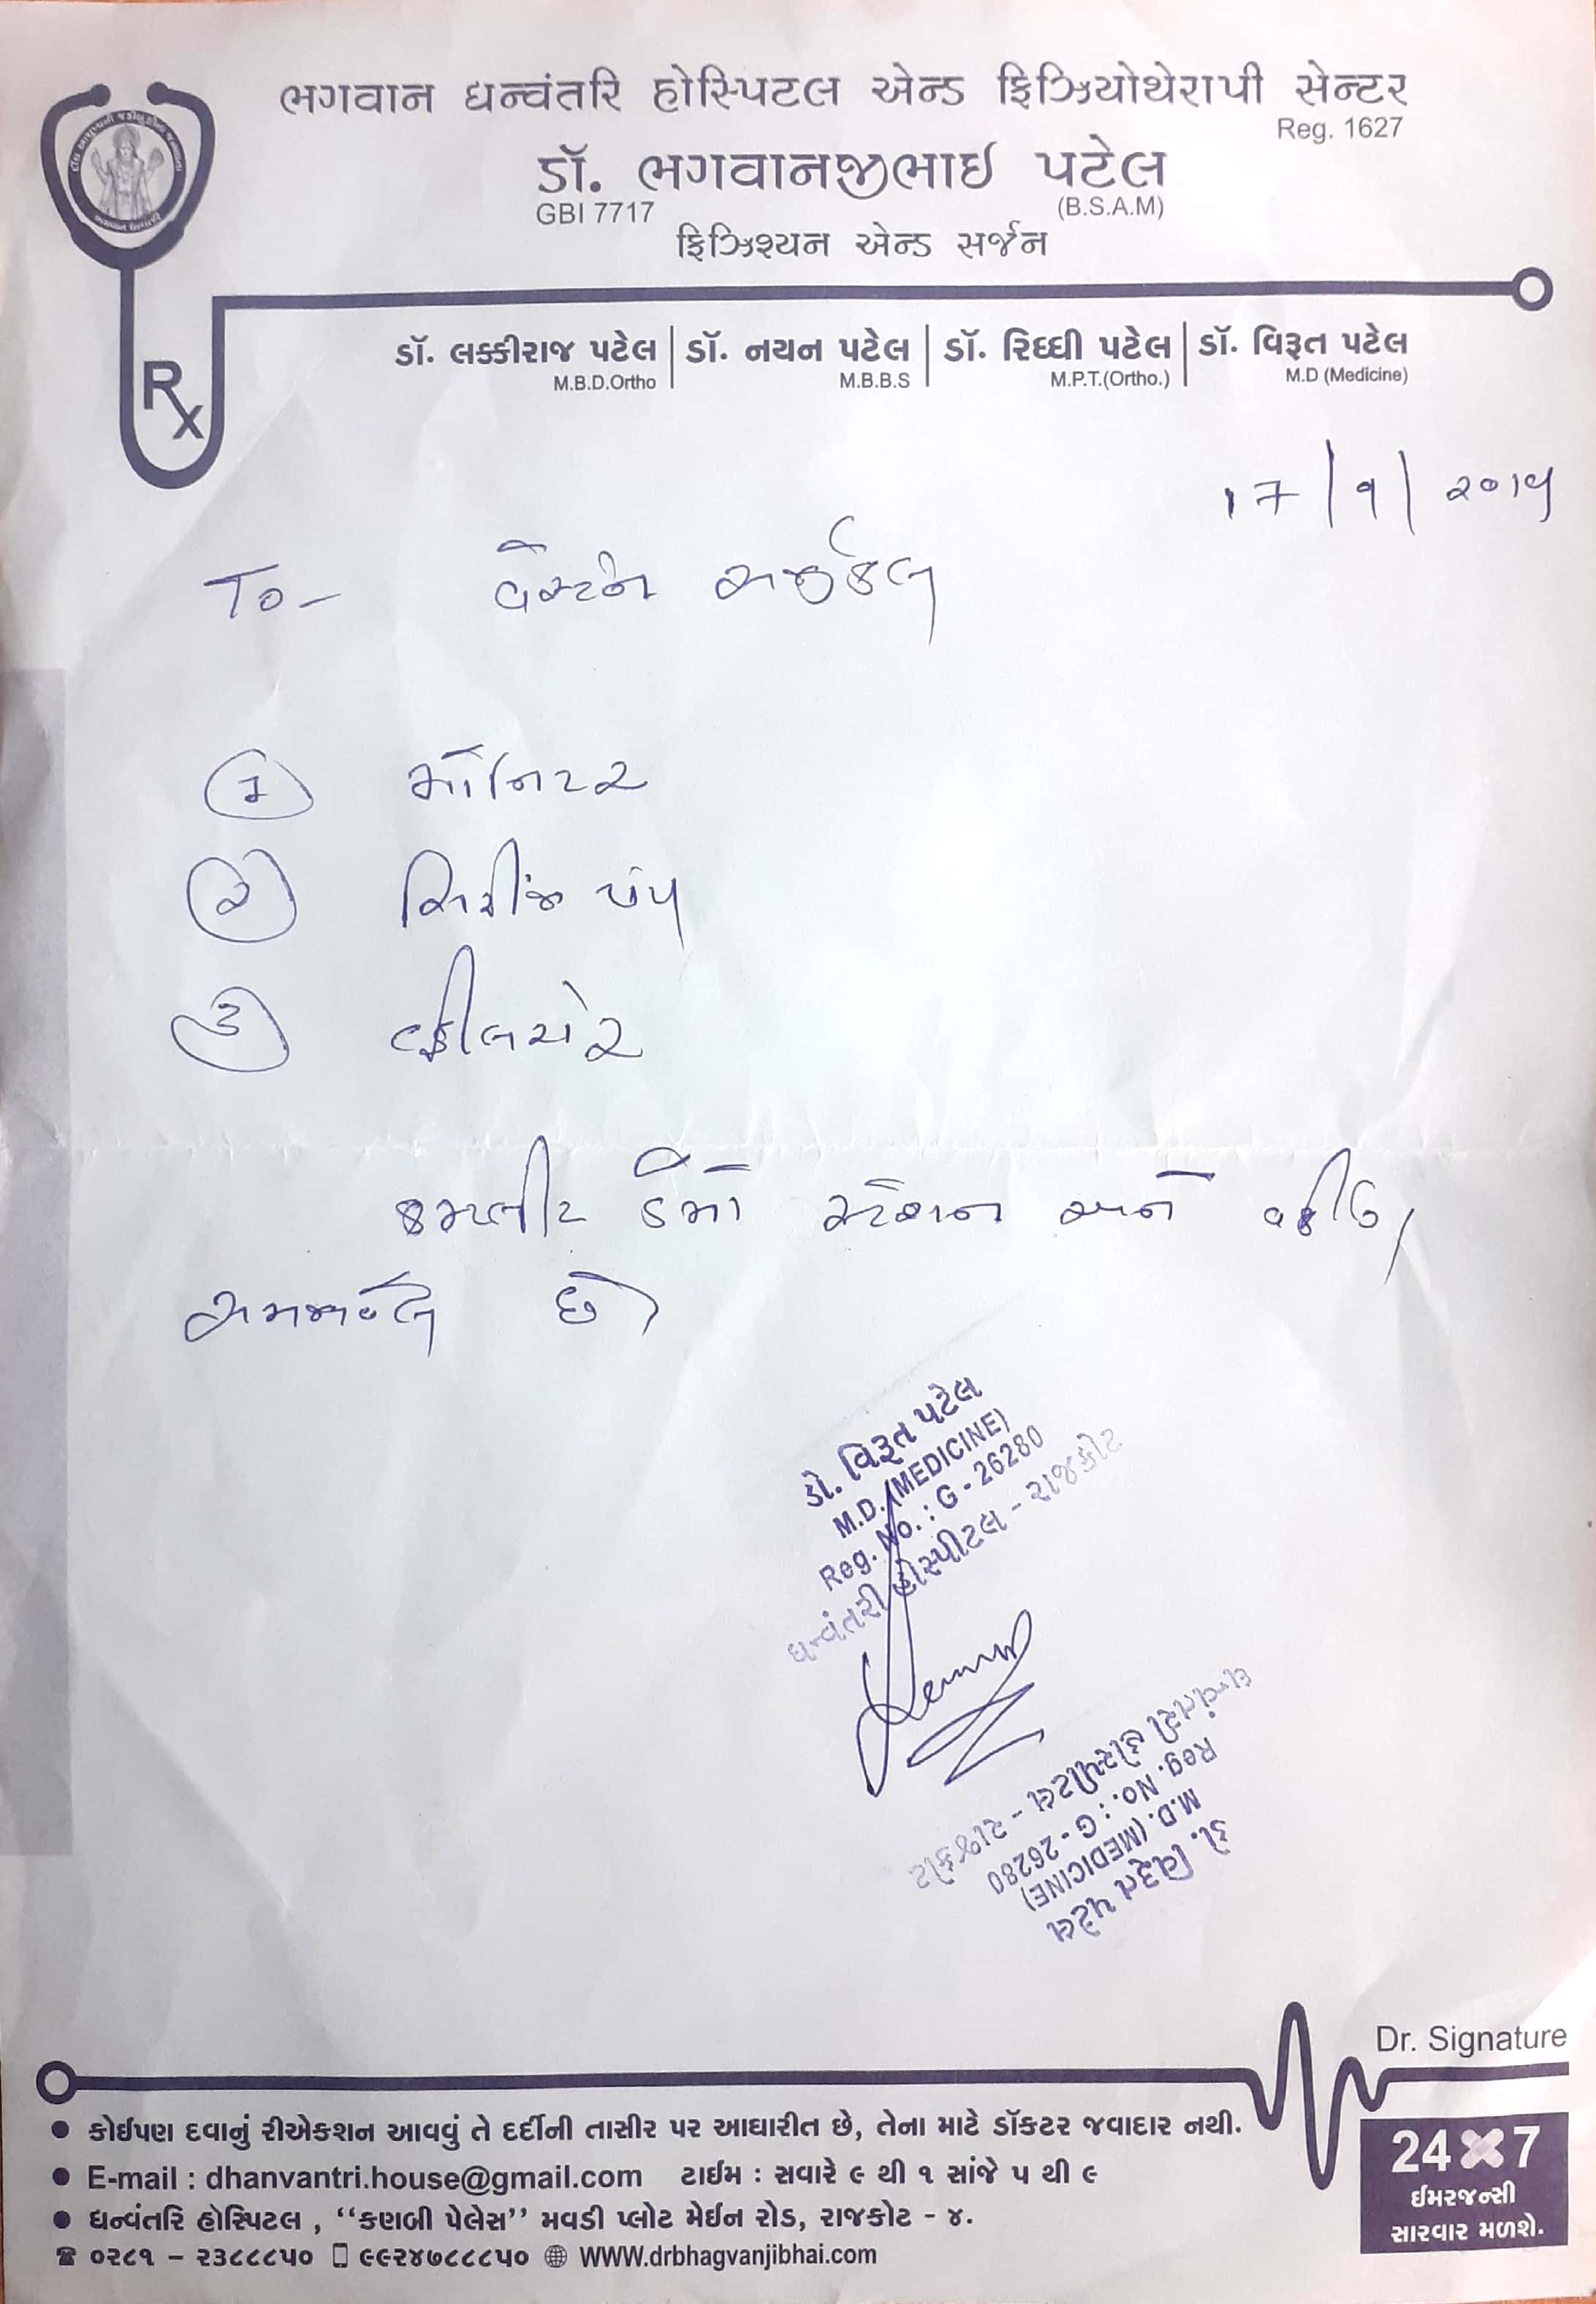 ભગવાન ધન્વંતરિ હોસ્પિટલ એન્ડ ફિઝિયોથેરાપી સેન્ટર
Reg. 1627
ડૉ. ભગવાનજીભાઈ પટેલ
GBI 7717 (B.S.A.M)
ફિઝિશ્યન એન્ડ સર્જન
Rx
ડૉ. લક્કીરાજ પટેલ | ડૉ. નયન પટેલ | ડૉ. રિધ્ધી પટેલ | ડૉ. વિરૂત પટેલ
M.B.D.Ortho M.B.B.S M.P.T.(Ortho.) M.D (Medicine)
17/૧/૨૦૧૫
To- વેસ્ટર્ન સર્જીકલ
૧ મોનિટર
૨ સિરીંજ પંપ
૩ વ્હીલચેર
કમ્પ્લીટ ડેમો સ્ટેશન અને
સમજાવેલ છે
ડો. વિરૂત પટેલ
M.D. (MEDICINE)
Reg. No. : G - 26280
ધન્વંતરી હોસ્પીટલ - રાજકોટ
ડો. વિરૂત પટેલ
M.D. (MEDICINE)
Reg. No. : G - 26280
ધન્વંતરી હોસ્પીટલ - રાજકોટ
Dr. Signature
• કોઈપણ દવાનું રીએકશન આવવું તે દર્દીની તાસીર પર આધારીત છે, તેના માટે ડૉકટર જવાદાર નથી.
• E-mail : dhanvantri.house@gmail.com ટાઈમ : સવારે ૯ થી ૧ સાંજે ૫ થી ૯
• ધન્વંતરિ હોસ્પિટલ , ‘‘કણબી પેલેસ’’ મવડી પ્લોટ મેઈન રોડ, રાજકોટ - ૪.
૦૨૮૧ – ૨૩૮૮૮૫૦ ૯૯૨૪૭૮૮૮૫૦ WWW.drbhagvanjibhai.com
24 x 7
ઈમરજન્સી
સારવાર મળશે.